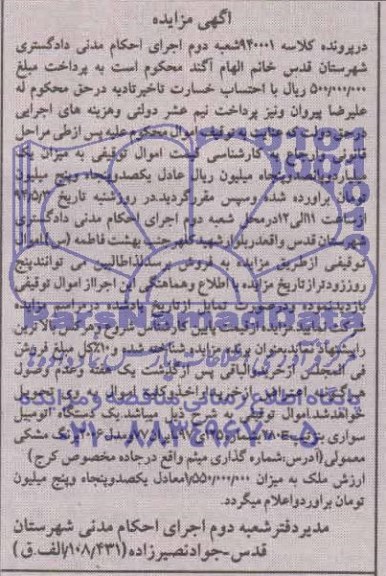 آگهی مزایده
درپرونده کلاسه ۹۴۰۰۰۱شعبه دوم اجرای احکام مدنی دادگستری
شهرستان قدس خانم الهام آگند محکوم است به پرداخت مبلغ
۵۰۰/۰۰۰/۰۰۰ ریال با احتساب خسارت تاخیرتادیه درحق محکوم له
علیرضا پیروان ونیز پرداخت نیم عشر دولتی وهزینه های اجرایی
درحق دولت که عنایت به توقیف اموال محکوم علیه پس ازطی مراحل
قانونی وارجاع به کارشناسی قیمت اموال توقیفی به میزان یک
میلیاردوپانصدوپنجاه میلیون ریال عادل یکصدوپنجاه وپنج میلیون
تومان براورده شده وسپس مقررگردید.در روزشنبه تاریخ
ازساعت ۱۱الی۱۲درمحل شعبه دوم اجرای احکام مدنی دادگستری
شهرستان قدس واقعدربلوارشهیدکلهرجنب بهشت فاطمه (س)اموال
توقیفی ازطریق مزایده به فروش برسدلذاطالبین می توانندپنج
روززودترازتاریخ مزایده بااطلاع وهماهنگی این اجرااز اموال توقیفی
بازدیدنموده ودرصورت تمایل ازتاریخ یادشده درمراسم مزایده
شرکت نمایند.مزایده ازقیمت پایه کارشناس شروع وهرکس بالاترین
راپیشنهادنمایدبعنوان برنده مزایده شناخته شده و۱۰٪کل مبلغ فروش
فی المجلس ازخریدارالباقی پس ازگذشت یک هفته وعدم وصول
هرگونه اعتراض ازخریداراخذ وکلیه اموال به وی تحویل
خواهدشد.اموال توقیفی به شرح ذیل میباشد.یک دستگاه اتومبیل
سواری رنگ مشکی
معمولی(آدرس:شماره گذاری میثم واقع درجاده مخصوص کرج )
ارزش ملک به میزان ۱/۵۵۰/۰۰۰/۰۰۰معادل یکصدوپنجاه وپنج میلیون
تومان براورداواعلام میگردد.
مدیردفترشعبه دوم اجرای احکام مدنی شهرستان
قدس-جوادنصیرزاده (۱۰۸/۴۳۱/الف.ق )
ParsNamadData
پایگاه اطلاع رسانی مناقصه و مزایده
۰۲۱-۸۸۳۴۹۶۷۰-۵